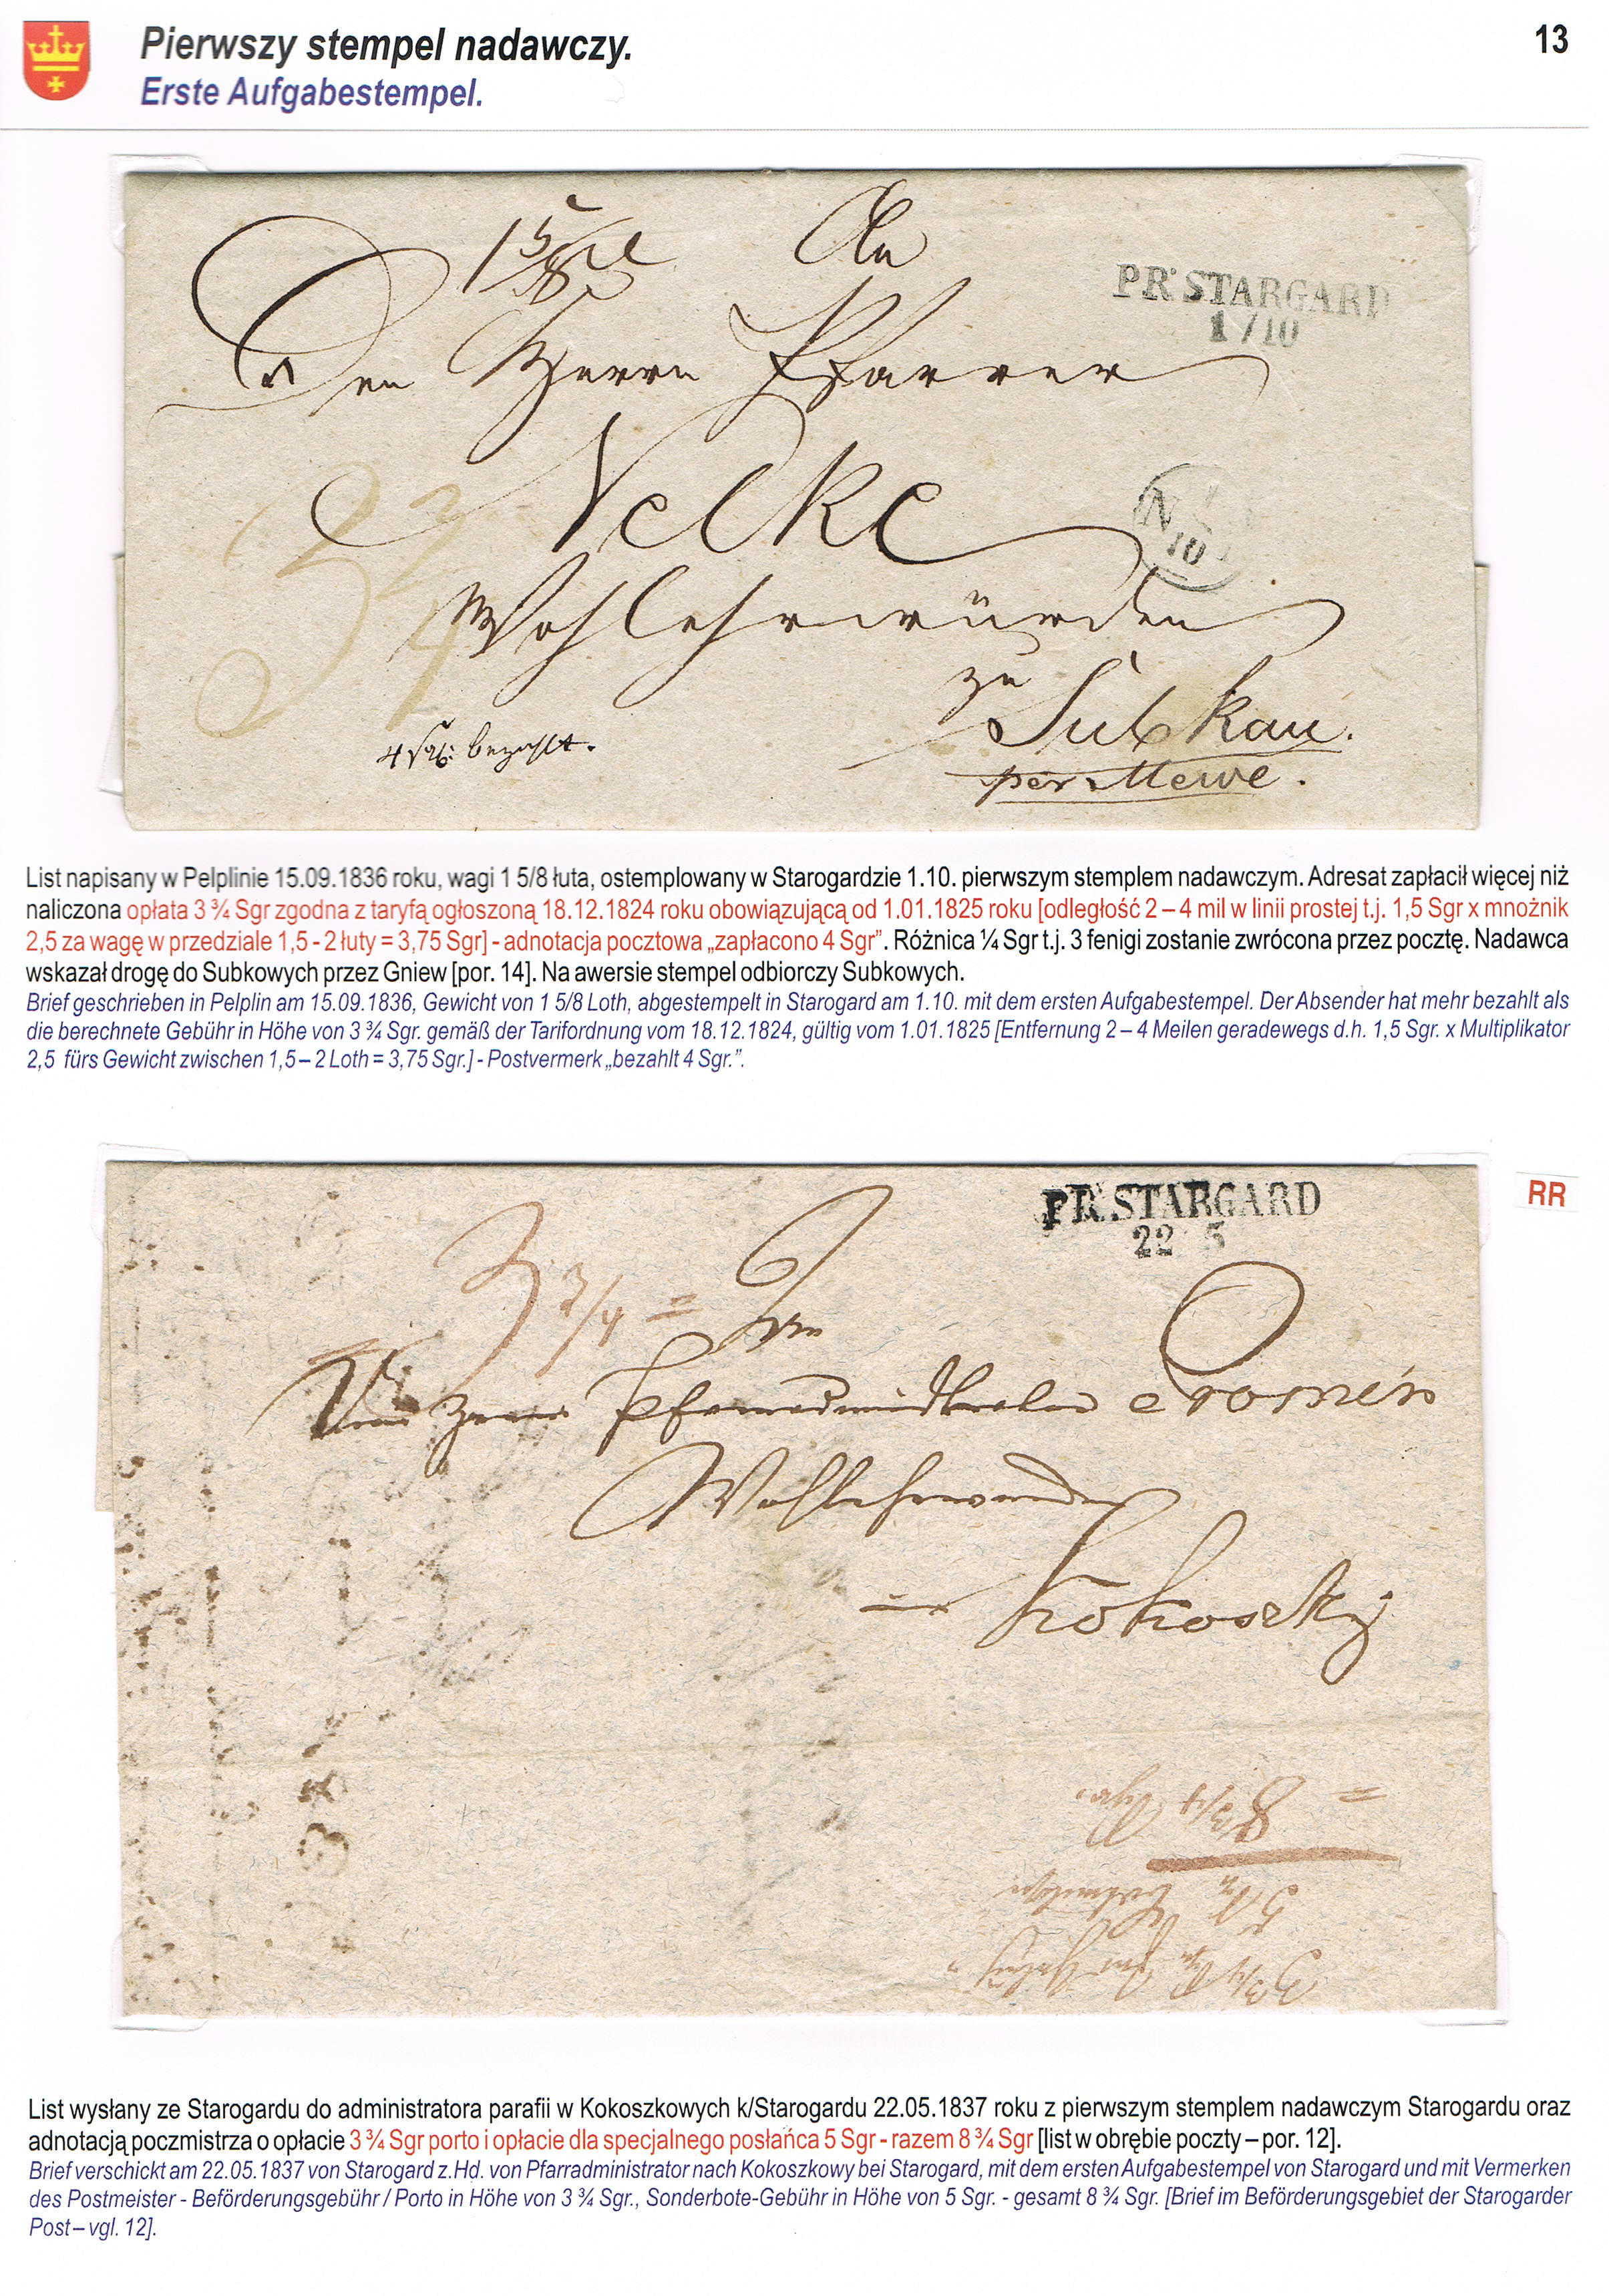 Pierwszy stempel nadawczy.
13
Erste Aufgabestempel.
1 5/8
An
PR. STARGARD
1/10
Den Herrn Pfarrer
Nelke
N
10
3 3/4
Wohlehrwürden
zu
Subkau.
4 Sgr. bezahlt.
per Mewe.
List napisany w Pelplinie 15.09.1836 roku, wagi 1 5/8 łuta, ostemplowany w Starogardzie 1.10. pierwszym stemplem nadawczym. Adresat zapłacił więcej niż
naliczona opłata 3 ¾ Sgr zgodna z taryfą ogłoszoną 18.12.1824 roku obowiązującą od 1.01.1825 roku [odległość 2 – 4 mil w linii prostej t.j. 1,5 Sgr x mnożnik
2,5 za wagę w przedziale 1,5 - 2 łuty = 3,75 Sgr] - adnotacja pocztowa „zapłacono 4 Sgr”. Różnica ¼ Sgr t.j. 3 fenigi zostanie zwrócona przez pocztę. Nadawca
wskazał drogę do Subkowych przez Gniew [por. 14]. Na awersie stempel odbiorczy Subkowych.
Brief geschrieben in Pelplin am 15.09.1836, Gewicht von 1 5/8 Loth, abgestempelt in Starogard am 1.10. mit dem ersten Aufgabestempel. Der Absender hat mehr bezahlt als
die berechnete Gebühr in Höhe von 3 ¾ Sgr. gemäß der Tarifordnung vom 18.12.1824, gültig vom 1.01.1825 [Entfernung 2 – 4 Meilen geradewegs d.h. 1,5 Sgr. x Multiplikator
2,5 fürs Gewicht zwischen 1,5 – 2 Loth = 3,75 Sgr.] - Postvermerk „bezahlt 4 Sgr.”.
PR. STARGARD
22 5
RR
3 3/4 =
Herrn Pfarradministrator
Wohlehrwürden
Kokoszki
8 3/4 Sgr.
5 Sgr.
3 3/4 Sgr.
List wysłany ze Starogardu do administratora parafii w Kokoszkowych k/Starogardu 22.05.1837 roku z pierwszym stemplem nadawczym Starogardu oraz
adnotacją poczmistrza o opłacie 3 ¾ Sgr porto i opłacie dla specjalnego posłańca 5 Sgr - razem 8 ¾ Sgr [list w obrębie poczty – por. 12].
Brief verschickt am 22.05.1837 von Starogard z.Hd. von Pfarradministrator nach Kokoszkowy bei Starogard, mit dem ersten Aufgabestempel von Starogard und mit Vermerken
des Postmeister - Beförderungsgebühr / Porto in Höhe von 3 ¾ Sgr., Sonderbote-Gebühr in Höhe von 5 Sgr. - gesamt 8 ¾ Sgr. [Brief im Beförderungsgebiet der Starogarder
Post – vgl. 12].